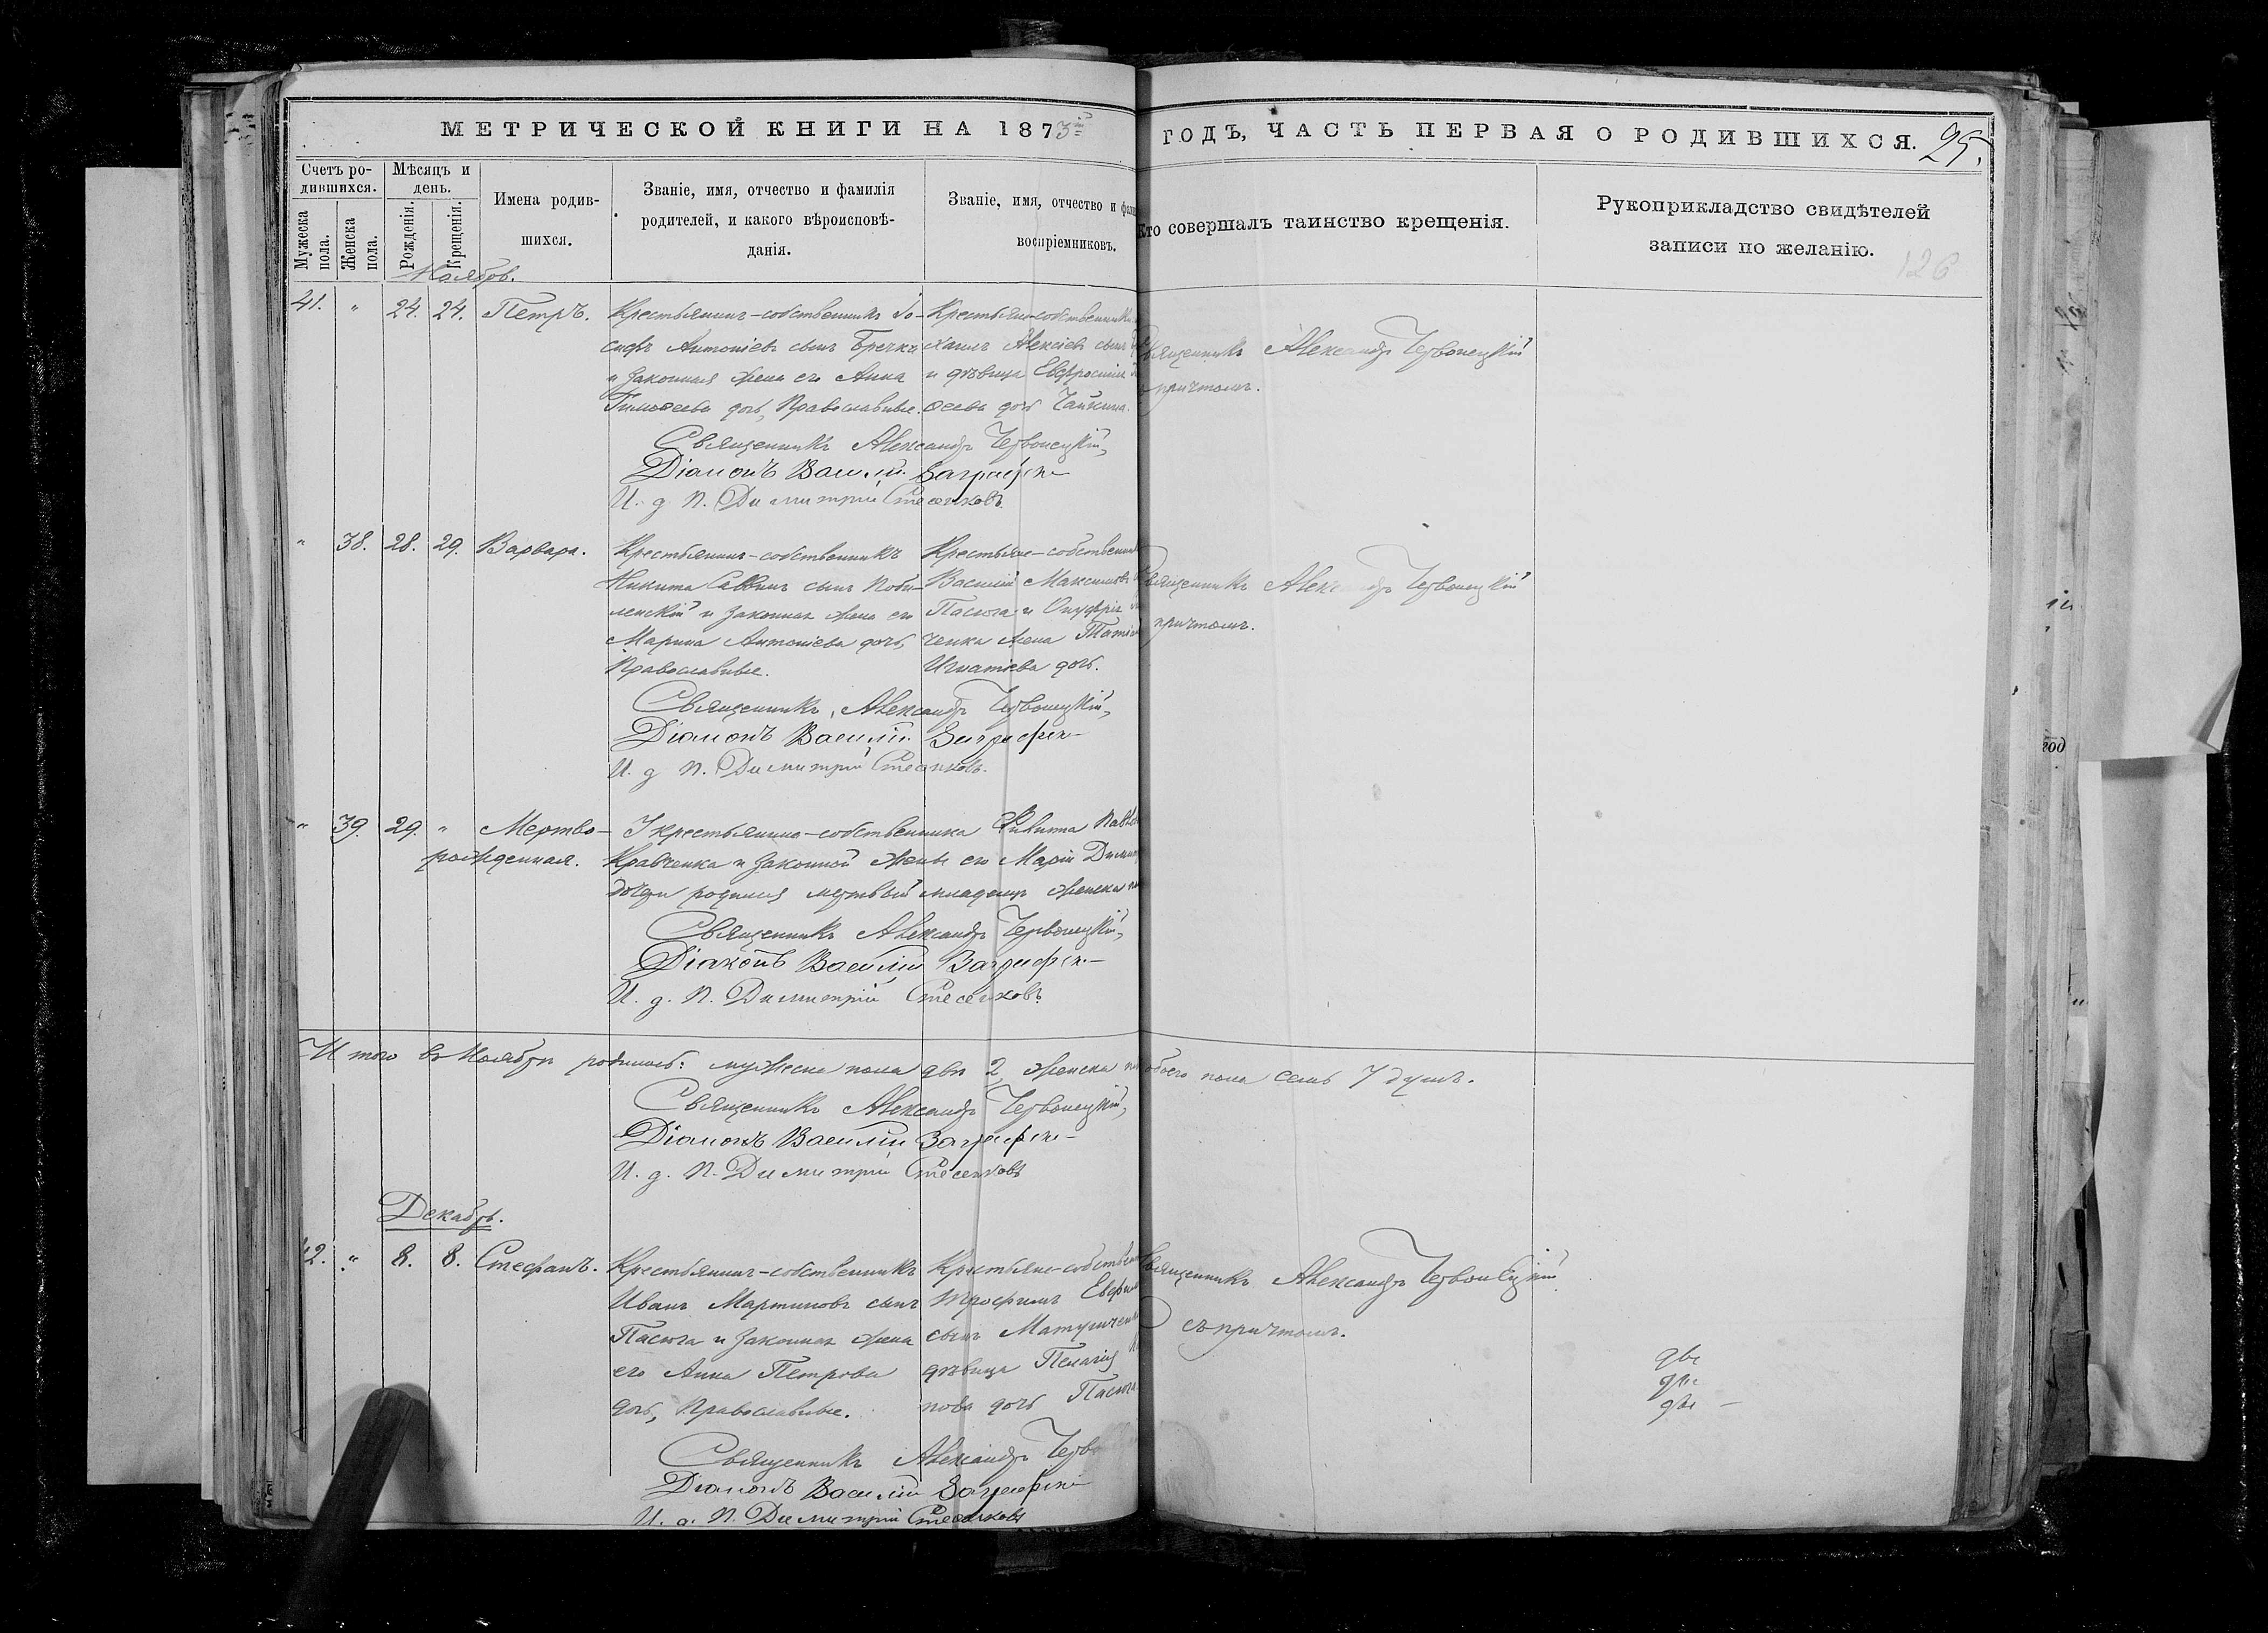 МЕТРИЧЕСКОЙ КНИГИ НА 1873
ГОДЪ, ЧАСТЬ ПЕРВАЯ О РОДИВШИХСЯ. 25.
Счетъ ро-
дившихся.
Мужеска
пола.
Женска
пола.
Мѣсяцъ и
день.
Рожденія.
Крещенія.
Имена родив-
шихся.
Званіе, имя, отчество и фамилія
родителей, и какого вѣроисповѣ-
данія.
Званіе, имя, отчество и
воспріемниковъ.
Кто совершалъ таинство крещенія.
Рукоприкладство свидѣтелей
записи по желанію.
126
Ноябрь.
41. " 24. 24. Петръ.
Крестьянинъ-собственникъ Іо-
сифъ Антоніевъ сынъ
и законная жена его Анна
Тимоѳеева дочь, Православные.
Крестьяне-собственники
Алексіевъ сынъ
и дѣвица Евфросинія
дочь
Священникъ Александръ Червонецкій
причтомъ.
Священникъ Александръ Червонецкій,
Діаконъ Василій
И. д. П. Димитрій
" 38. 28. 29. Варвара.
Крестьянинъ-собственникъ
Никита Саввинъ сынъ Коби-
ленскій и законная жена его
Марина Антоніева дочь,
Православные.
Крестьяне-собственн
Василій Максимовъ
Пасюга и Онуфрія
ченка жена
Игнатіева дочь.
Священникъ Александръ Червонецкій
причтомъ.
Священникъ, Александръ Червонецкій,
Діаконъ Василій
И. д. П. Димитрій
" 39. 29. " Мертво-
рожденная.
У крестьянина-собственника
Кравченка и законной жены его Маріи
дочери родился мертвый младенецъ женска
Священникъ Александръ Червонецкій,
Діаконъ Василій
И. д. П. Димитрій
Итого въ Ноябрѣ родилось: мужеска пола два 2, женска
обоего пола семь 7 душъ.
Священникъ Александръ Червонецкій,
Діаконъ Василій
И. д. П. Димитрій
Декабрь.
42. " 8. 8. Стефанъ.
Крестьянинъ-собственникъ
Иванъ Мартиновъ сынъ
Пасюга и законная жена
его Анна Петрова
дочь, Православные.
Крестьяне-собствен
Трофимъ
сынъ
дѣвица Пелагія
нова дочь Пасюга
Священникъ Александръ Червонецкій
съ причтомъ.
две
две
две
Священникъ Александръ
Діаконъ Василій
И. д. П. Димитрій